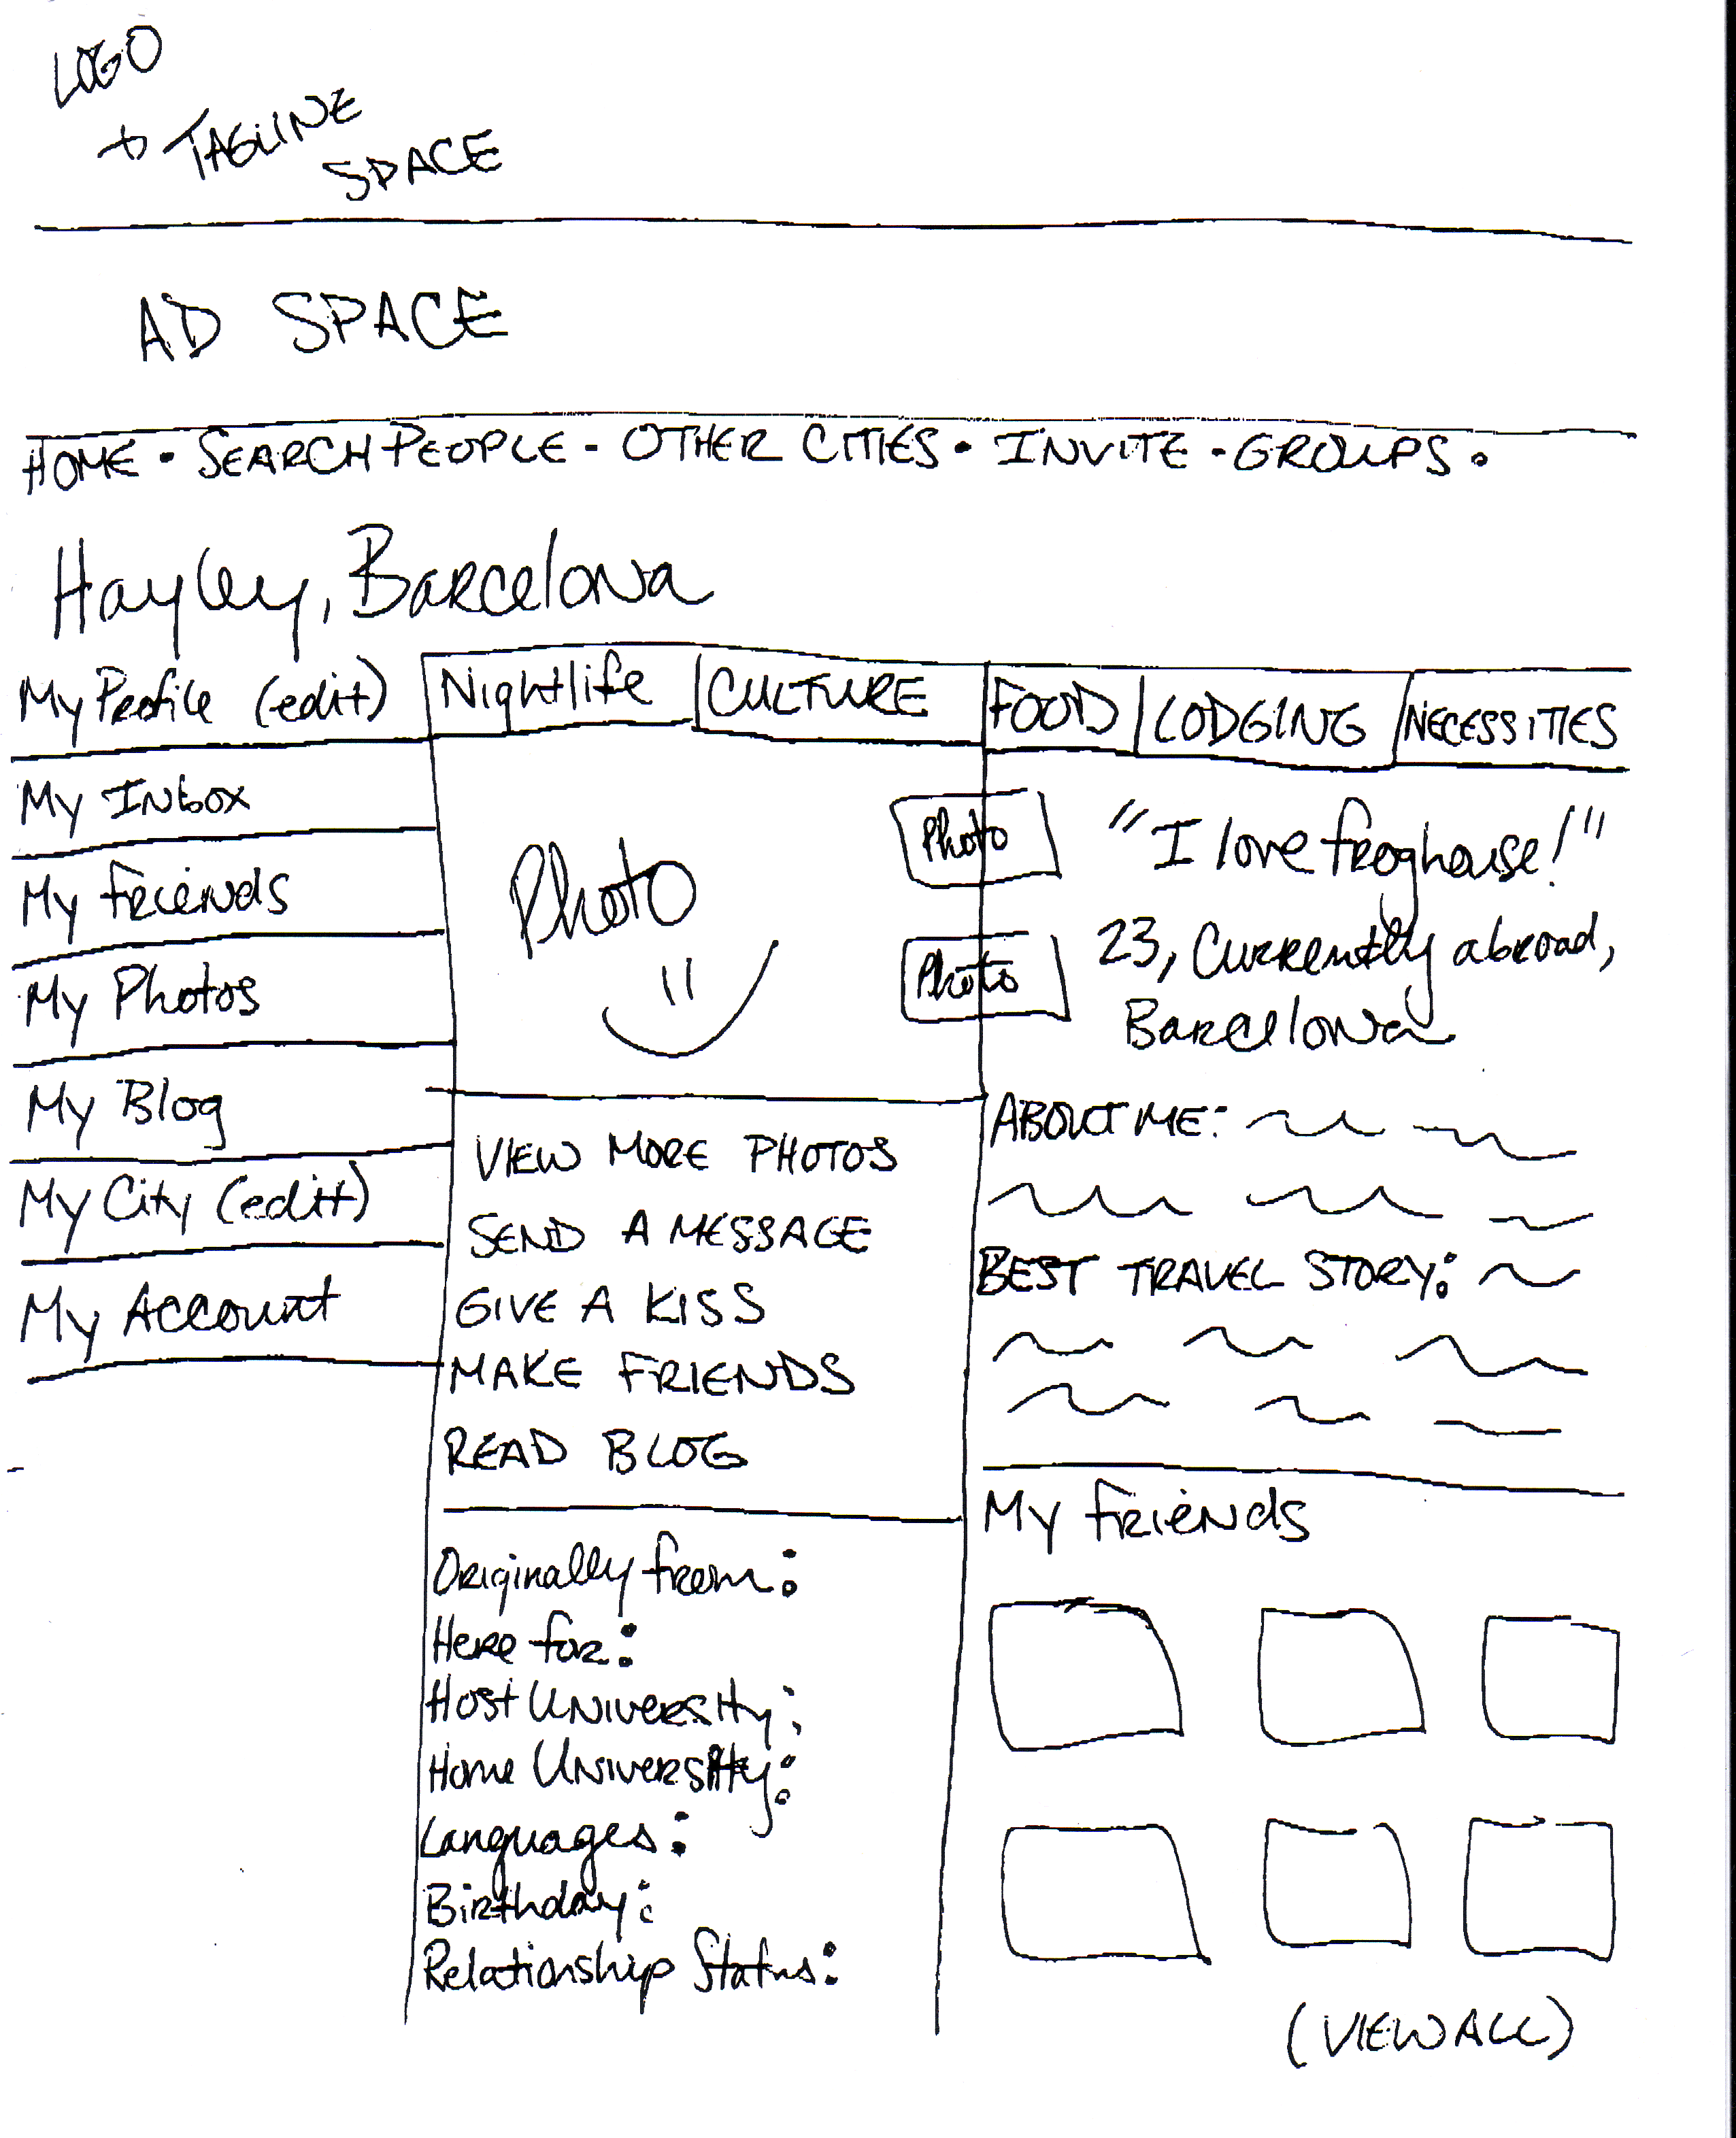 LOGO
+ TAGLINE
SPACE
AD SPACE
HOME • SEARCH PEOPLE - OTHER CITIES • INVITE - GROUPS •
Hayley, Barcelona
My Profile (edit)
My Inbox
My Friends
My Photos
My Blog
My City (edit)
My Account
Nightlife | CULTURE | FOOD | LODGING | NECESSITIES
Photo
Photo
Photo
VIEW MORE PHOTOS
SEND A MESSAGE
GIVE A KISS
MAKE FRIENDS
READ BLOG
Originally from:
Here for:
Host University:
Home University:
Languages:
Birthday:
Relationship Status:
"I love froghouse!"
23, Currently abroad,
Barcelona
ABOUT ME:
BEST TRAVEL STORY:
My Friends
(VIEW ALL)